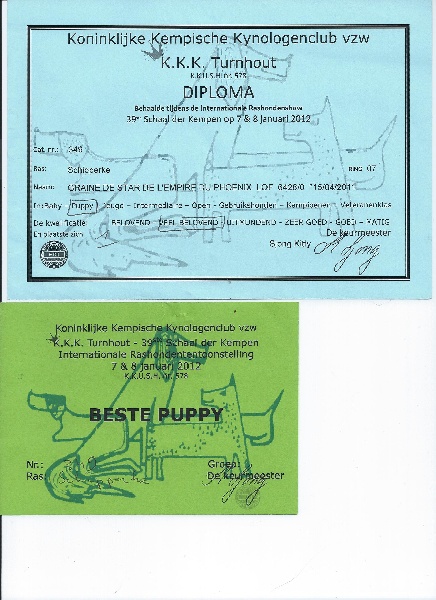 Koninklijke Kempische Kynologenclub vzw
K.K.K. Turnhout
K.K.U.S.H. nr. 578
DIPLOMA
Behaalde tijdens de Internationale Rashondenshow
39ste Schaal der Kempen op 7 & 8 januari 2012
Cat. nr.: 349
Ras: Schipperke RING 07
Naam: GRAINE DE STAR DE L'EMPIRE DU PHOENIX LOF 6426/0 15/04/2011
In: Baby Puppy Jeugd – Intermediaire – Open – Gebruikshonden – Kampioenen – Veteranenklas
De kwalificatie: BELOVEND VEEL BELOVEND UITMUNTEND – ZEER GOED – GOED – MATIG
En plaatste zich De keurmeester
Sjong Kitty
Koninklijke Kempische Kynologenclub vzw
K.K.K. Turnhout - 39ste Schaal der Kempen
Internationale Rashondententoonstelling
7 & 8 januari 2012
K.K.U.S.H. nr. 578
BESTE PUPPY
Nr.: Groep:
Ras: De keurmeester